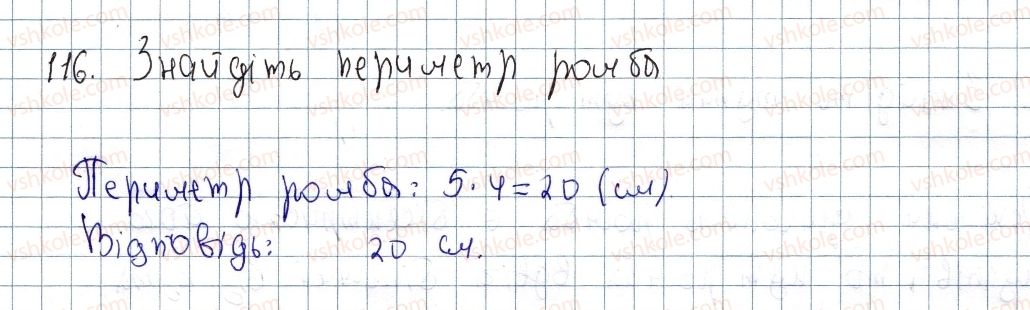 116. Знайдіть периметр ромба
Периметр ромба: 5·4=20 (см).
Відповідь: 20 см.